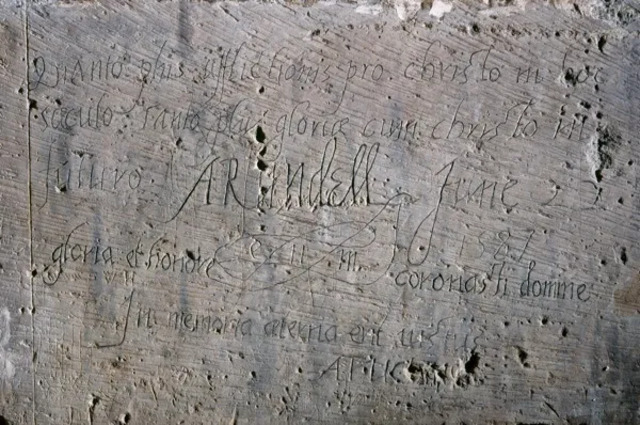 Quanto plus afflictionis pro Christo in hoc
saeculo tanto plus gloriae cum christo in
futuro. ARUndell June 22
1587
gloria et honore eum coronasti domine
In memoria aeterna erit iustus